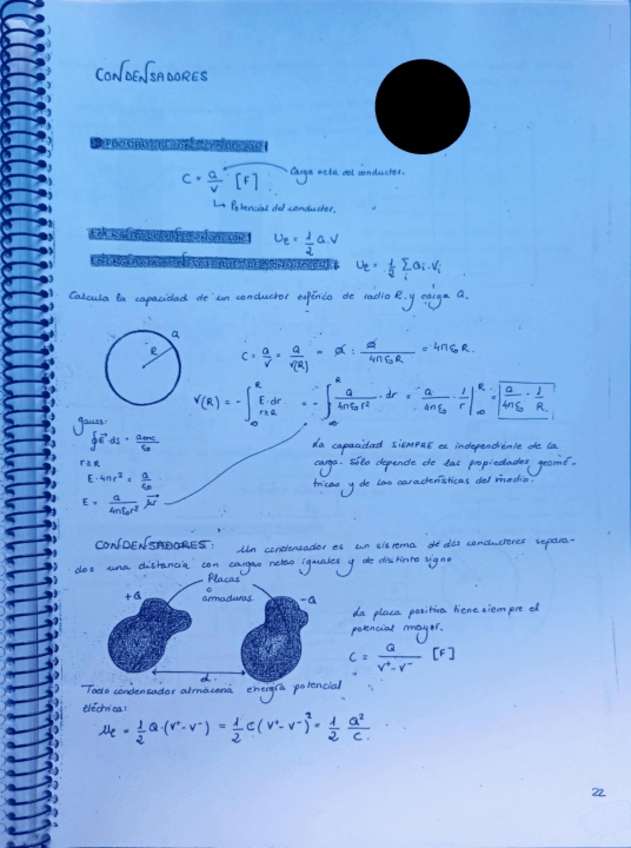 CONDENSADORES
C = Q/V [F]
Carga neta del conductor.
↳ Potencial del conductor.
Ue = 1/2 Q.V
Ue = 1/2 Σi Qi.Vi
Calcula la capacidad de un conductor esférico de radio R. y carga Q.
Q
R
C = Q/V = Q/V(R) = Q : Q/4πε0R = 4πε0R.
V(R) = - ∫∞^R E·dr r≥R = - ∫∞^R Q/4πε0r² · dr = Q/4πε0 · 1/r |∞^R = Q/4πε0 · 1/R.
gauss:
∮E·ds = Qenc/ε0
r≥R
E·4πr² = Q/ε0
E = Q/4πε0r² ur
La capacidad SIEMPRE es independiente de la
carga. Sólo depende de las propiedades geomé-
tricas y de las características del medio.
CONDENSADORES: Un condensador es un sistema de dos conductores separa-
dos una distancia con cargas netas iguales y de distinto signo
Placas
o
armaduras
+Q
-Q
d
La placa positiva tiene siempre el
potencial mayor.
C = Q/V⁺-V⁻ [F]
Todo condensador almacena energía potencial
eléctrica:
Ue = 1/2 Q·(V⁺-V⁻) = 1/2 C(V⁺-V⁻)² = 1/2 Q²/C.
22